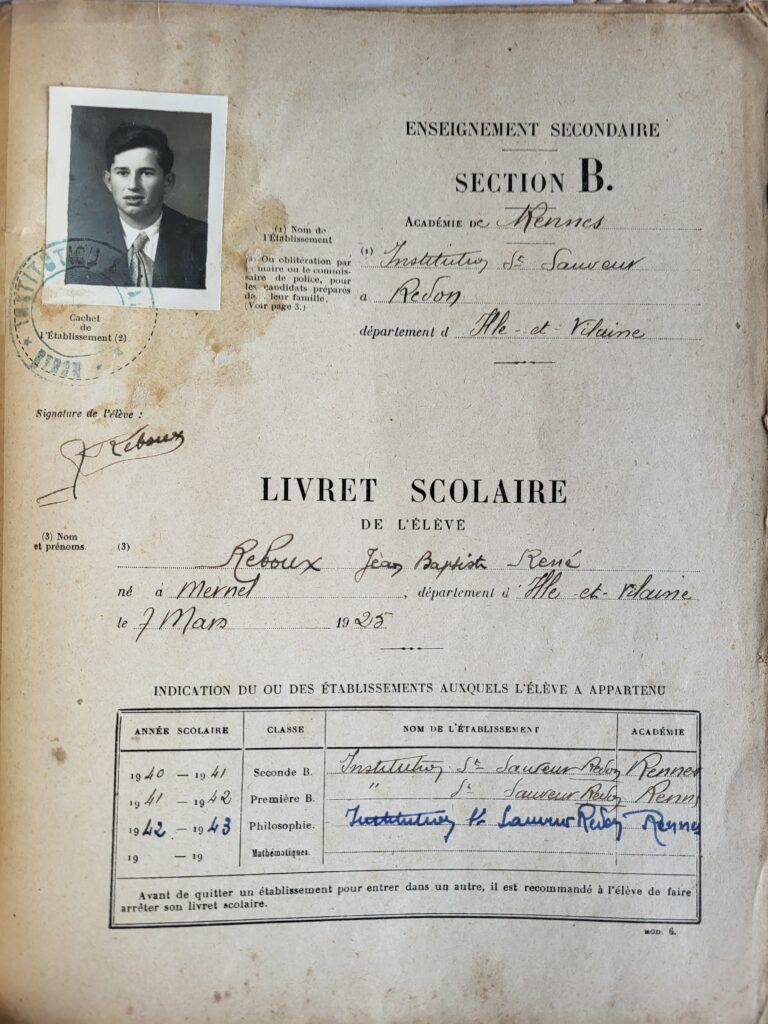 ENSEIGNEMENT SECONDAIRE
SECTION B.
ACADÉMIE DE Rennes
(1) Nom de
l'Établissement
(1) Institution St Sauveur
Ou oblitération par
maire ou le commis-
saire de police, pour
les candidats préparés
leur famille.
(Voir page 3.)
à Redon
département d Ille-et-Vilaine
Cachet
de
l'Établissement (2)
INSTITUTION
Signature de l'élève :
J Reboux
LIVRET SCOLAIRE
DE L'ÉLÈVE
(3) Nom
et prénoms.
(3) Reboux Jean Baptiste René
né à Mernel, département d' Ille-et-Vilaine
le 7 Mars 1925
INDICATION DU OU DES ÉTABLISSEMENTS AUXQUELS L'ÉLÈVE A APPARTENU
ANNÉE SCOLAIRE CLASSE NOM DE L'ÉTABLISSEMENT ACADÉMIE
1940 — 1941 Seconde B. Institution St Sauveur Redon Rennes
1941 — 1942 Première B. " St Sauveur Redon Renn
1942 — 1943 Philosophie. Institution St Sauveur Redon Rennes
19 — 19 Mathématiques.
Avant de quitter un établissement pour entrer dans un autre, il est recommandé à l'élève de faire
arrêter son livret scolaire.
MOD. 6.